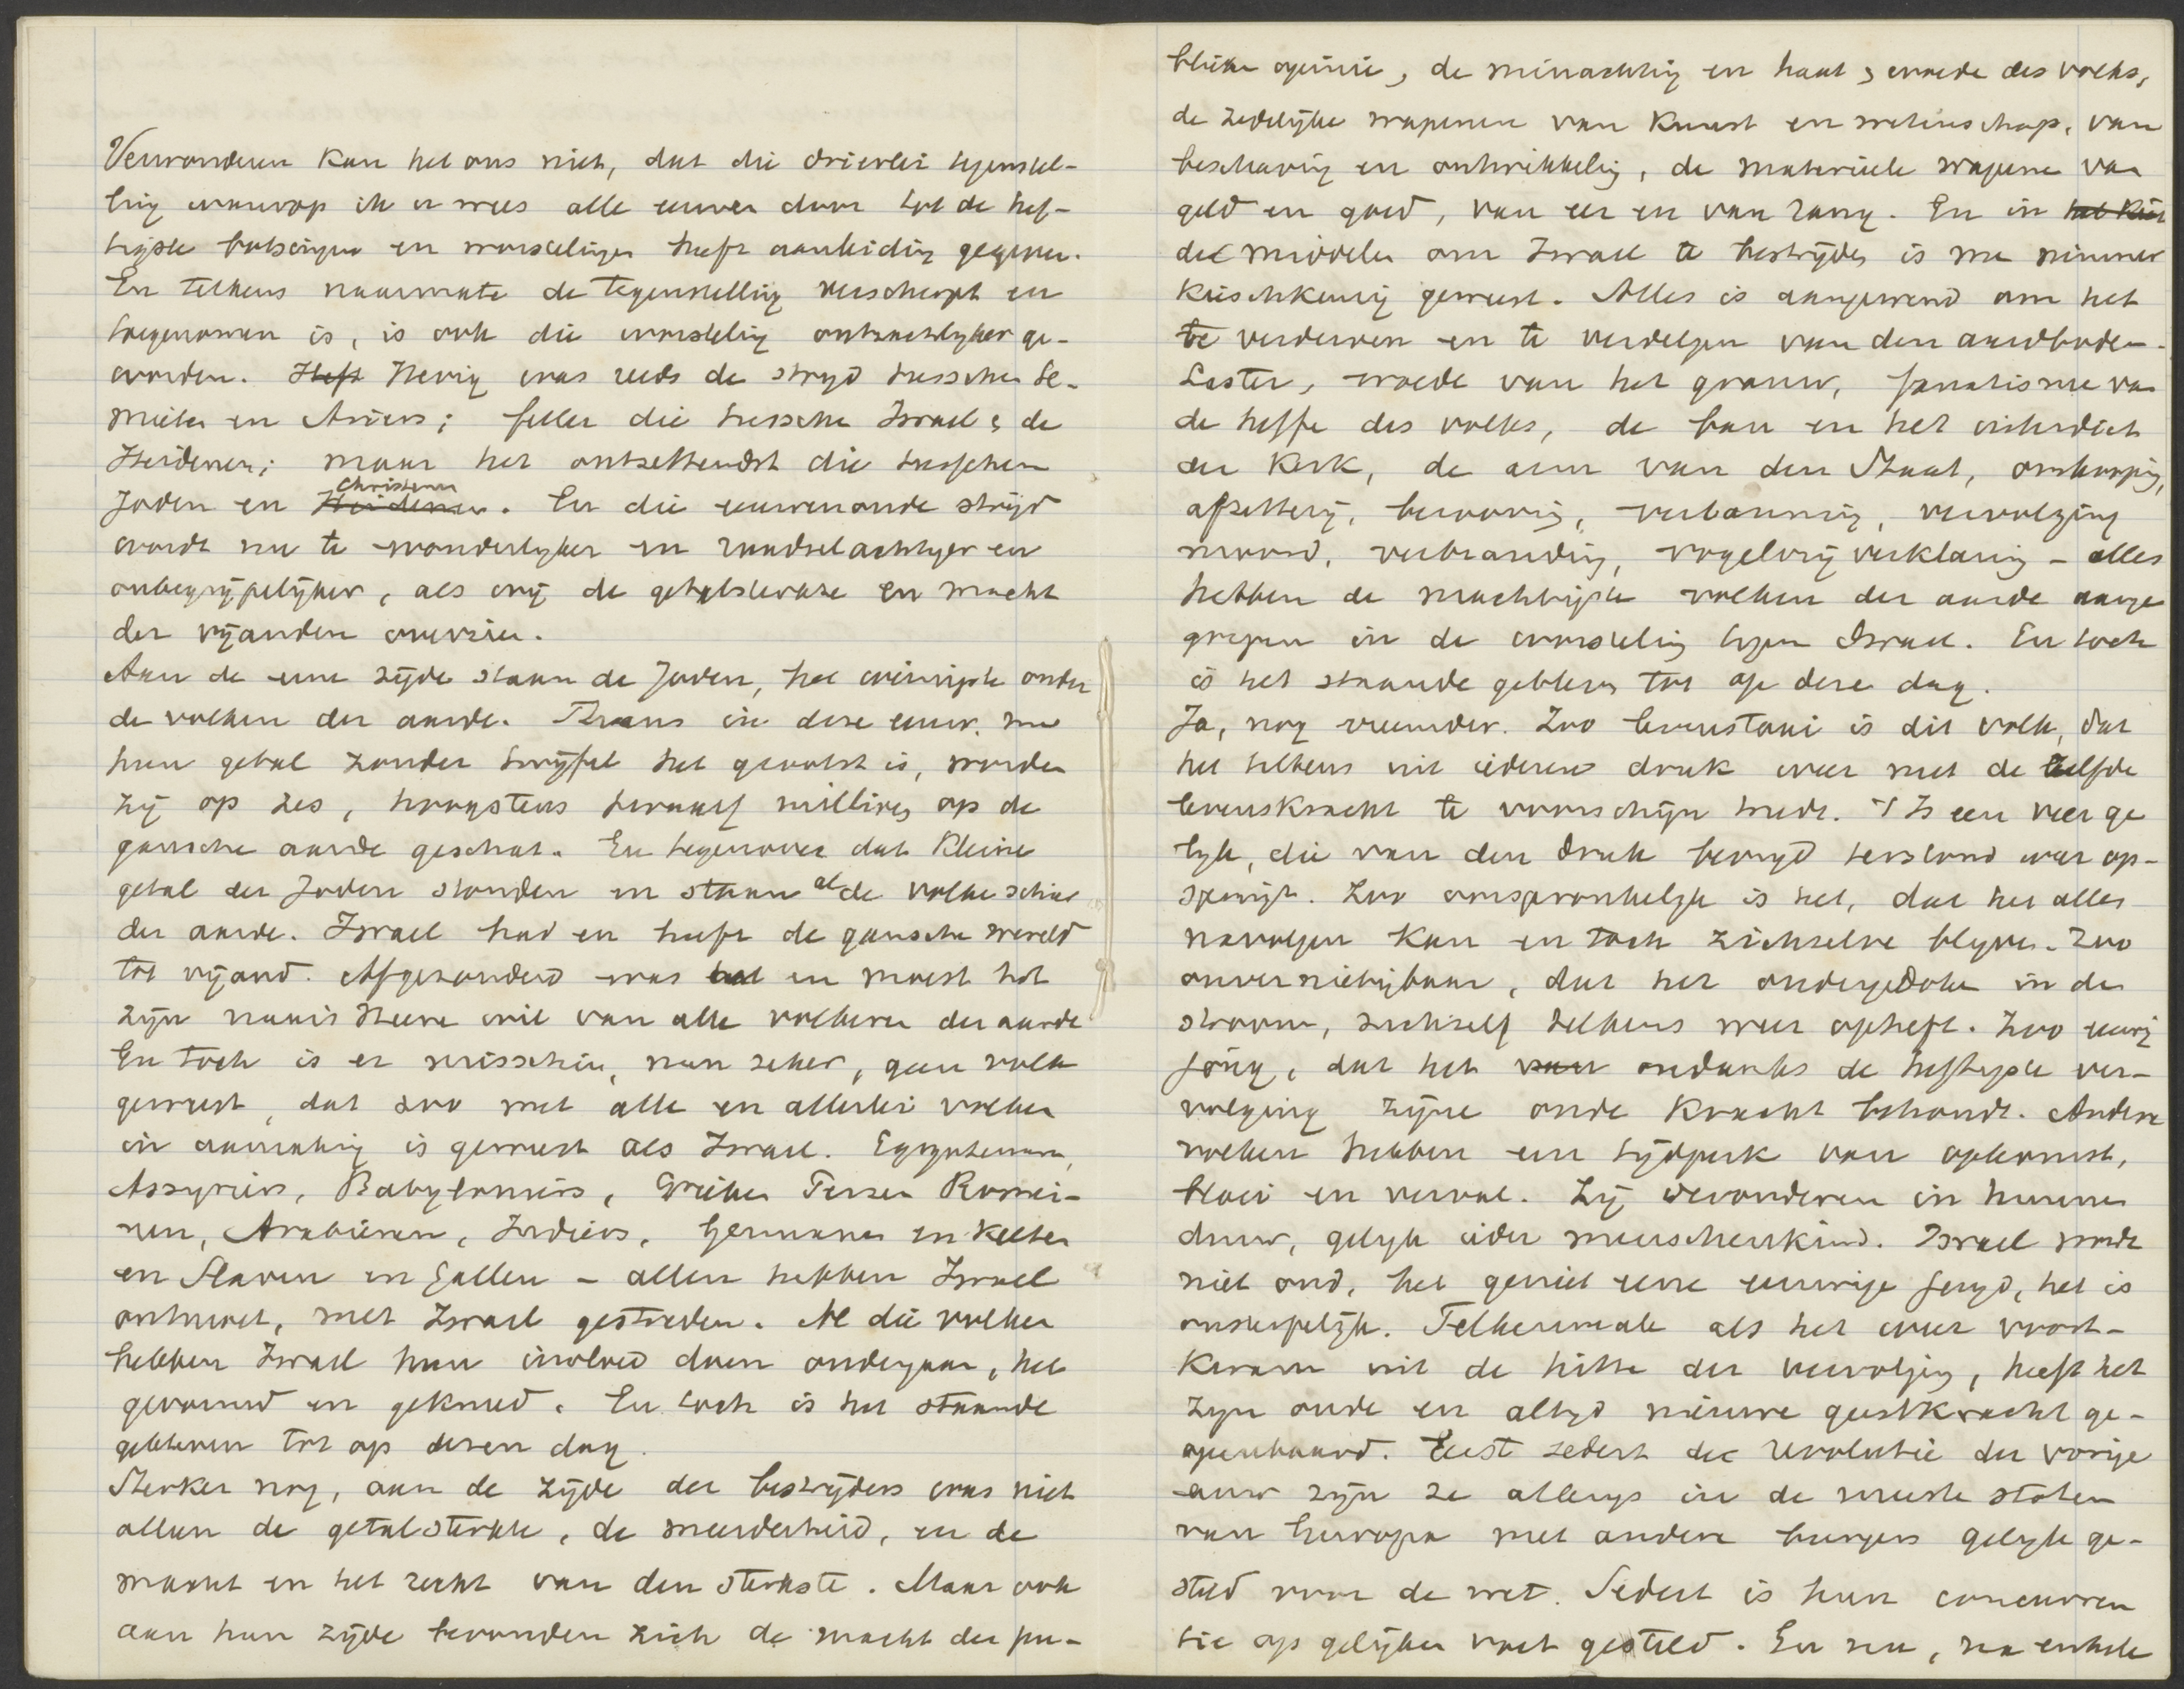 Verwonderen kan het ons niet, dat die drieerlei tegenstel-
ling waarop ik u wees alle eeuwen door tot de hef-
tigste botsingen en worstelingen heeft aanleiding gegeven.
En telkens naarmate de tegenstelling verscherpt en
toegenomen is, is ook die worsteling ontzachlyker ge-
worden. Heft Hevig was reeds de stryd tusschen Se-
mieten en Ariers; feller die tusschen Israel & de
Heidenen; maar het ontzettendst die tusschen
Joden en Heidenen Christenen. En die eeuwenoude strijd
wordt nu te wonderlyker en raadselachtiger en
onbegrijpelijker, als wij de getalsterkte en macht
der vijanden overzien.
Aan de eene zijde staan de Joden, het weinigste onder
de volken der aarde. Thans in deze eeuw, nu
hun getal zonder twijfel het grootst is, worden
zij op zes, hoogstens twaalf millioen op de
gansche aarde geschat. En tegenover dat kleine
getal der Joden stonden en staan al de volkeschaar
der aarde. Israel had en heeft de gansche wereld
tot vijand. Afgezonderd was het en moest het
zijn naar 's Heeren wil van alle volkeren der aarde
En toch is er misschien, neen zeker, geen volk
geweest, dat zoo met alle en allerlei volken
in aanraking is geweest als Israel. Egyptenaren,
Assyriers, Babyloniers, Grieken Perzen Romei-
nen, Arabieren, Indiers, Germanen en Kelten
en Slaven en Gallen – allen hebben Israel
ontmoet, met Israel gestreden. Al die volken
hebben Israel hun invloed doen ondergaan, het
gevormd en gekneed. En toch is het staande
gebleven tot op dezen dag.
Sterker nog, aan de zijde der bestrijders was niet
alleen de getalsterkte, de meerderheid, en de
macht en het recht van den sterkste. Maar ook
aan hun zijde bevonden zich de macht der pu-
blieke opinie, de minachting en haat & woede des volks,
de zedelijke wapenen van kunst en wetenschap, van
beschaving en ontwikkeling, de materieele wapene van
geld en goed, van eer en van rang. En in het
de middelen om Israel te bestrijden is me nimmer
kieschkeurig geweest. Alles is aangewend om het
te verderven en te verdelgen van den aardbodem.
Laster, woede van het graauw, fanatisme van
de heffe des volks, de ban en het interdict
der Kerk, de arm van den Staat,
afzetterij, berooving, verbanning, vervolging
moord, verbranding, vogelvrijverklaring – alles
hebben de machtigste volken der aarde aange
grepen in de worsteling tegen Israel. En toch
is het staande gebleven tot op deze dag.
Ja, nog vreemder. Zoo levenstaai is dit volk, dat
het telkens uit iederen druk weer met de zelfde
levenskracht te voorschijn treedt. 't Is een veer ge
lyk, die van den druk bevryd terstond weer op-
springt. Zoo oorspronkelyk is het, dat het alles
navolgen kan en toch zichzelve blyven. Zoo
onvernietigbaar, dat het ondergedoken in den
stroom, zichzelf telkens weer opheft. Zoo eeuwig
jong, dat het ondanks de heftigste ver-
volging zijne oude kracht behoudt. Andere
volken hebben een tijdperk van opkomst,
bloei en verval. Zij verouderen in hunnen
duur, gelyk ieder menschenkind. Israel wordt
niet oud, het geniet eene eeuwige jeugd, het is
onsterfelijk. Telkenmale als het weer voort-
kwam uit de hitte der vervolging, heeft het
zyn oude en altyd nieuwe geestkracht ge-
openbaard. Eerst sedert de revolutie der vorige
eeuw zijn ze allengs in de meeste staten
van Europa met andere burgers gelyk ge-
steld voor de wet. Sedert is hun concurren
tie op gelijken voet gesteld. En nu, na enkele